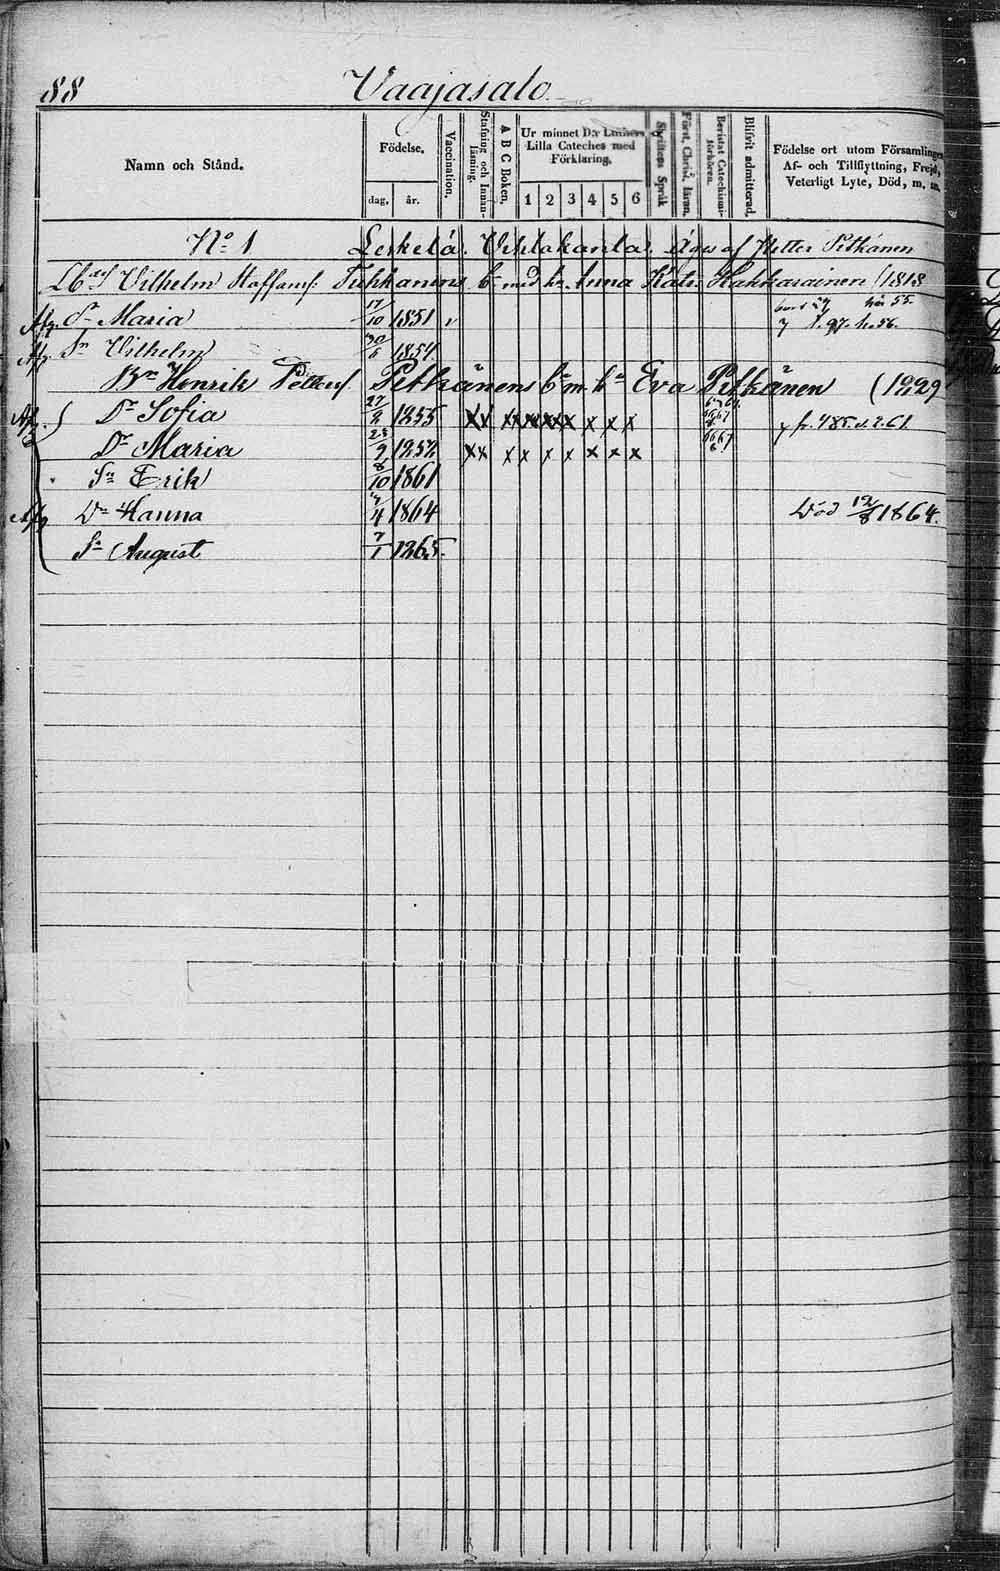 88 Vaajasalo.
Namn och Stånd. Födelse. Vaccination. Stafning och Innanläsning. A B C Boken. Ur minnet D:r Luthers Lilla Cateches med Förklaring. Skriftens Språk Först. Christ. läran. Bevistat Catechismiförhören. Blifvit admitterad. Födelse ort utom Församlingen, Af- och Tillflyttning, Frejd, Veterligt Lyte, Död, m. m.
dag. år. 1 2 3 4 5 6
No 1 Leskelä. Vehtakanta. Äges af Petter Pitkänen
Vilhelm Staffansf: Tuhkanens med Anna Kats: Hakkarainen (1818
Afg. Dr Maria 17/10 1851
Afg. Sn Vilhelm 30/6 1854.
Bn Henrik Petters. Pitkänens bn m. hu Eva Pitkänen (1829
Afg. Dr Sofia 27/2 1855 x x x x x x x x 6667
Dr Maria 23/9 1858 x x x x x x x x 6667
Sn Erik 8/10 1861
Afg Dr Hanna 1864 Död 12/8 1864.
Sn August 7/1 1865.